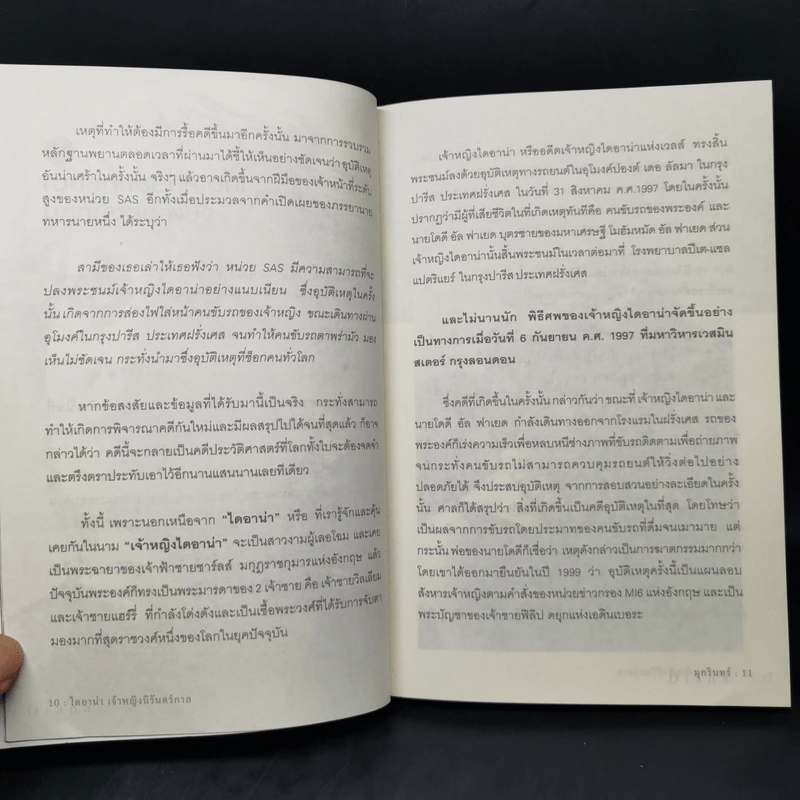 เหตุที่ทำให้ต้องมีการรื้อคดีขึ้นมาอีกครั้งนั้น มาจากการรวบรวม
หลักฐานพยานตลอดเวลาที่ผ่านมาได้ชี้ให้เห็นอย่างชัดเจนว่าอุบัติเหตุ
อันน่าเศร้าในครั้งนั้น จริงๆ แล้วอาจเกิดขึ้นจากฝีมือของเจ้าหน้าที่ระดับ
สูงของหน่วย SAS อีกทั้งเมื่อประมวลจากคำเปิดเผยของภรรยานาย
ทหารนายหนึ่ง ได้ระบุว่า
สามีของเธอเล่าให้เธอฟังว่า หน่วย SAS มีความสามารถที่จะ
ปลงพระชนม์เจ้าหญิงไดอาน่าอย่างแนบเนียน ซึ่งอุบัติเหตุในครั้ง
นั้น เกิดจากการส่องไฟใส่หน้าคนขับรถของเจ้าหญิง ขณะเดินทางผ่าน
อุโมงค์ในกรุงปารีส ประเทศฝรั่งเศส จนทำให้คนขับรถตาพร่ามัว มอง
เห็นไม่ชัดเจน กระทั่งนำมาซึ่งอุบัติเหตุที่ช็อกคนทั่วโลก
หากข้อสงสัยและข้อมูลที่ได้รับมานี้เป็นจริง กระทั่งสามารถ
ทำให้เกิดการพิจารณาคดีกันใหม่และมีผลสรุปไปได้จนที่สุดแล้ว ก็อาจ
กล่าวได้ว่า คดีนี้จะกลายเป็นคดีประวัติศาสตร์ที่โลกทั้งใบจะต้องจดจำ
และตรึงตราประทับเอาไว้อีกนานแสนนานเลยทีเดียว
ทั้งนี้ เพราะนอกเหนือจาก “ไดอาน่า” หรือ ที่เรารู้จักและคุ้น
เคยกันในนาม “เจ้าหญิงไดอาน่า” จะเป็นสาวงามผู้เลอโฉม และเคย
เป็นพระฉายาของเจ้าฟ้าชายชาร์ลส์ มกุฎราชกุมารแห่งอังกฤษ แล้ว
ปัจจุบันพระองค์ก็ทรงเป็นพระมารดาของ 2 เจ้าชาย คือ เจ้าชายวิลเลียม
และเจ้าชายแฮร์รี่ ที่กำลังโด่งดังและเป็นเชื้อพระวงศ์ที่ได้รับการจับตา
มองมากที่สุดราชวงศ์หนึ่งของโลกในยุคปัจจุบัน
10 : ไดอาน่า เจ้าหญิงนิรันดร์กาล
เจ้าหญิงไดอาน่า หรืออดีตเจ้าหญิงไดอาน่าแห่งเวลส์ ทรงสิ้น
พระชนม์ลงด้วยอุบัติเหตุทางรถยนต์ในอุโมงค์ปองต์ เดอ อัลมา ในกรุง
ปารีส ประเทศฝรั่งเศส ในวันที่ 31 สิงหาคม ค.ศ.1997 โดยในครั้งนั้น
ปรากฏว่ามีผู้ที่เสียชีวิตในที่เกิดเหตุทันทีคือ คนขับรถของพระองค์ และ
นายโดดี อัล ฟาเยด บุตรชายของมหาเศรษฐี โมฮัมหมัด อัล ฟาเยด ส่วน
เจ้าหญิงไดอาน่านั้นสิ้นพระชนม์ในเวลาต่อมาที่ โรงพยาบาลปีเต-แซล
แปตริแยร์ ในกรุงปารีส ประเทศฝรั่งเศส
และไม่นานนัก พิธีศพของเจ้าหญิงไดอาน่าจัดขึ้นอย่าง
เป็นทางการเมื่อวันที่ 6 กันยายน ค.ศ. 1997 ที่มหาวิหารเวสมิน
สเตอร์ กรุงลอนดอน
ซึ่งคดีที่เกิดขึ้นในครั้งนั้น กล่าวกันว่า ขณะที่ เจ้าหญิงไดอาน่า และ
นายโดดี อัล ฟาเยด กำลังเดินทางออกจากโรงแรมในฝรั่งเศส รถของ
พระองค์ก็เร่งความเร็วเพื่อหลบหนีช่างภาพที่ขับรถติดตามเพื่อถ่ายภาพ
จนกระทั่งคนขับรถไม่สามารถควบคุมรถยนต์ให้วิ่งต่อไปอย่าง
ปลอดภัยได้ จึงประสบอุบัติเหตุ จากการสอบสวนอย่างละเอียดในครั้ง
นั้น ศาลก็ได้สรุปว่า สิ่งที่เกิดขึ้นเป็นคดีอุบัติเหตุในที่สุด โดยโทษว่า
เป็นผลจากการขับรถโดยประมาทของคนขับรถที่ดื่มจนเมามาย แต่
กระนั้น พ่อของนายโดดีก็เชื่อว่า เหตุดังกล่าวเป็นการฆาตกรรมมากกว่า
โดยเขาได้ออกมายืนยันในปี 1999 ว่า อุบัติเหตุครั้งนี้เป็นแผนลอบ
สังหารเจ้าหญิงตามคำสั่งของหน่วยข่าวกรอง MI6 แห่งอังกฤษ และเป็น
พระบัญชาของเจ้าชายฟิลิป ดยุกแห่งเอดินเบอระ
มุกรินทร์ : 11